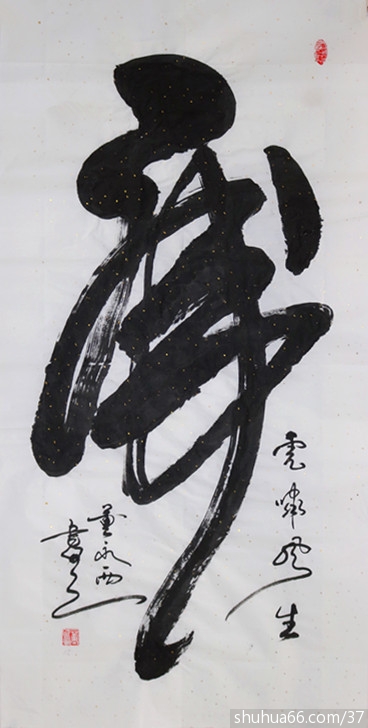 虎
虎啸风生
董永西
书
shuhua66.com/37